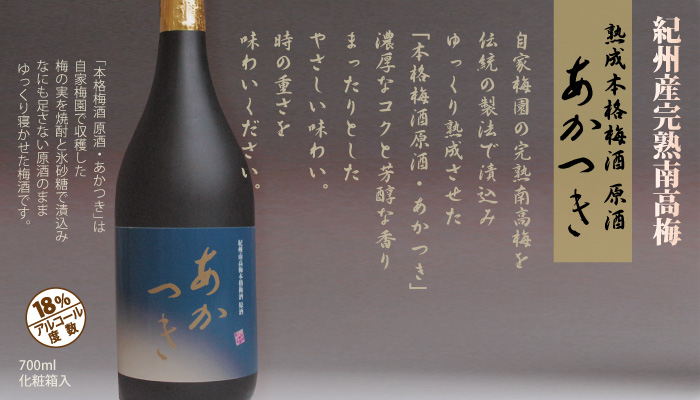 紀州産完熟南高梅
熟成本格梅酒 原酒
あかつき
自家梅園の完熟南高梅を
伝統の製法で漬込み
ゆっくり熟成させた
「本格梅酒原酒・あかつき」
濃厚なコクと芳醇な香り
まったりとした
やさしい味わい。
時の重さを
味わいください。
紀州南高梅本格梅酒 原酒
あか
つき
「本格梅酒 原酒・あかつき」は
自家梅園で収穫した
梅の実を焼酎と氷砂糖で漬込み
なにも足さない原酒のまま
ゆっくり寝かせた梅酒です。
18%
アルコール
度数
700ml
化粧箱入